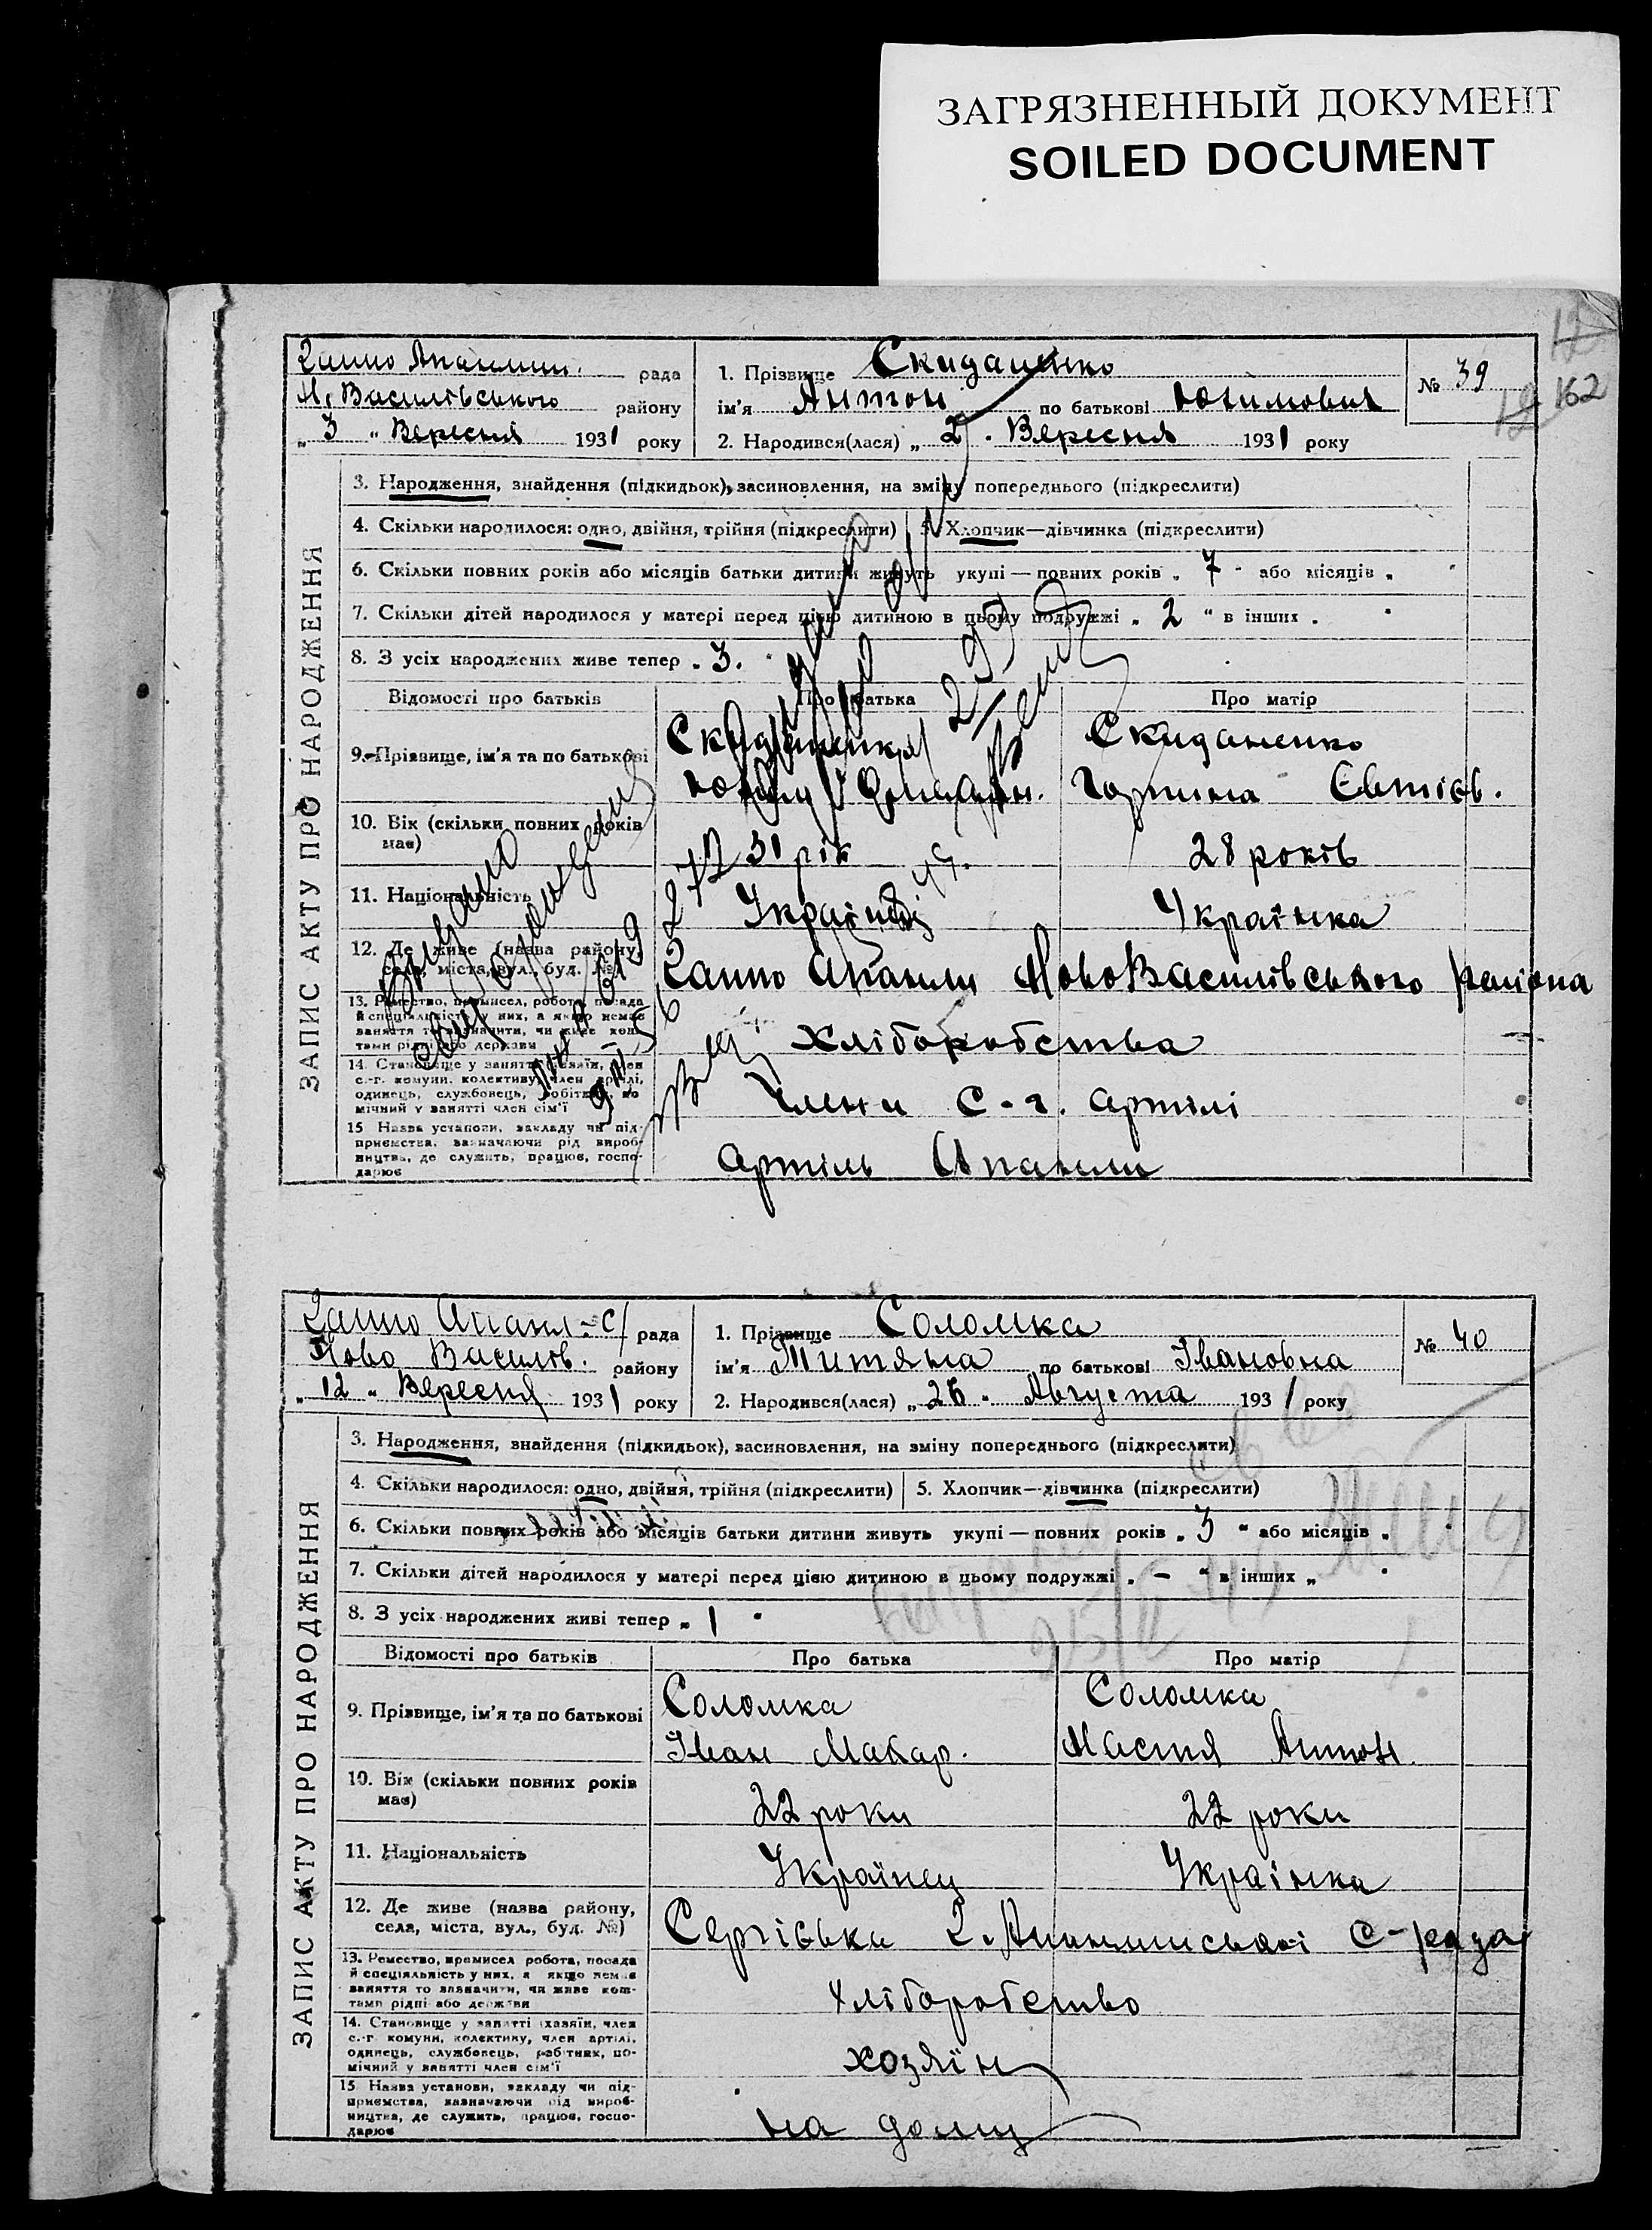 ЗАГРЯЗНЕННЫЙ ДОКУМЕНТ
SOILED DOCUMENT
12
12 162
рада
Н. Василівського району
„ 3 “ Вересня 1931 року
1. Прізвище Скиданенко
ім'я Антон по батькові Юхимович
2. Народився(лася) „ 2 “ Вересня 1931 року
№ 39
ЗАПИС АКТУ ПРО НАРОДЖЕННЯ
3. Народження, знайдення (підкидьок), засиновлення, на зміну попереднього (підкреслити)
4. Скільки народилося: одно, двійня, трійня (підкреслити)
5. Хлопчик—дівчинка (підкреслити)
6. Скільки повних років або місяців батьки дитини живуть укупі—повних років „ 7 “ або місяців „ “
7. Скільки дітей народилося у матері перед цією дитиною в цьому подружжі „ 2 “ в інших „ “
8. З усіх народжених живе тепер „ 3 “
Відомості про батьків
Про батька
Про матір
9. Прізвище, ім'я та по батькові
Скиданенко
Юхим
Скиданенко
Євтієв.
10. Вік (скільки повних років має)
31 рік
28 років
11. Національність
Українці
Українка
12. Де живе (назва району, села, міста, вул., буд. №)
НовоВасилівського району
13. Ремество, промисел, робота, посада
й спеціяльність у них, а якщо немає
заняття то зазначити, чи живе кош-
тами рідні або держави
Хліборобства
14. Становище у занятті (хазяїн, член
с.-г. комуни, колективу, член артілі,
одинець, службовець, робітник, по-
мічний у занятті член сім'ї
Члени с-г. артілі
15 Назва установи, закладу чи під-
приємства, зазначаючи рід вироб-
ництва, де служить, працює, госпо-
дарює
Артіль
рада
Ново Василів. району
„ 12 “ Вересня 1931 року
1. Прізвище Соломка
ім'я Титяна по батькові Івановна
2. Народився(лася) „ 26 “ Августа 1931 року
№ 40
ЗАПИС АКТУ ПРО НАРОДЖЕННЯ
3. Народження, знайдення (підкидьок), засиновлення, на зміну попереднього (підкреслити)
4. Скільки народилося: одно, двійня, трійня (підкреслити)
5. Хлопчик—дівчинка (підкреслити)
6. Скільки повних років або місяців батьки дитини живуть укупі—повних років „ 3 “ або місяців „ “
7. Скільки дітей народилося у матері перед цією дитиною в цьому подружжі „ – “ в інших „ “
8. З усіх народжених живі тепер „ 1 “
Відомості про батьків
Про батька
Про матір
9. Прізвище, ім'я та по батькові
Соломка
Іван Макар.
Соломка
Настя Антон.
10. Вік (скільки повних років має)
22 роки
22 роки
11. Національність
Українец
Українка
12. Де живе (назва району, села, міста, вул., буд. №)
Сергієвка с-рада
13. Ремество, промисел, робота, посада
й спеціяльність у них, а якщо немає
заняття то зазначити, чи живе кош-
тами рідні або держави
Хліборобство
14. Становище у занятті (хазяїн, член
с.-г. комуни, колективу, член артілі,
одинець, службовець, робітник, по-
мічний у занятті член сім'ї
хозяїн
15 Назва установи, закладу чи під-
приємства, зазначаючи рід вироб-
ництва, де служить, працює, госпо-
дарює
на дому